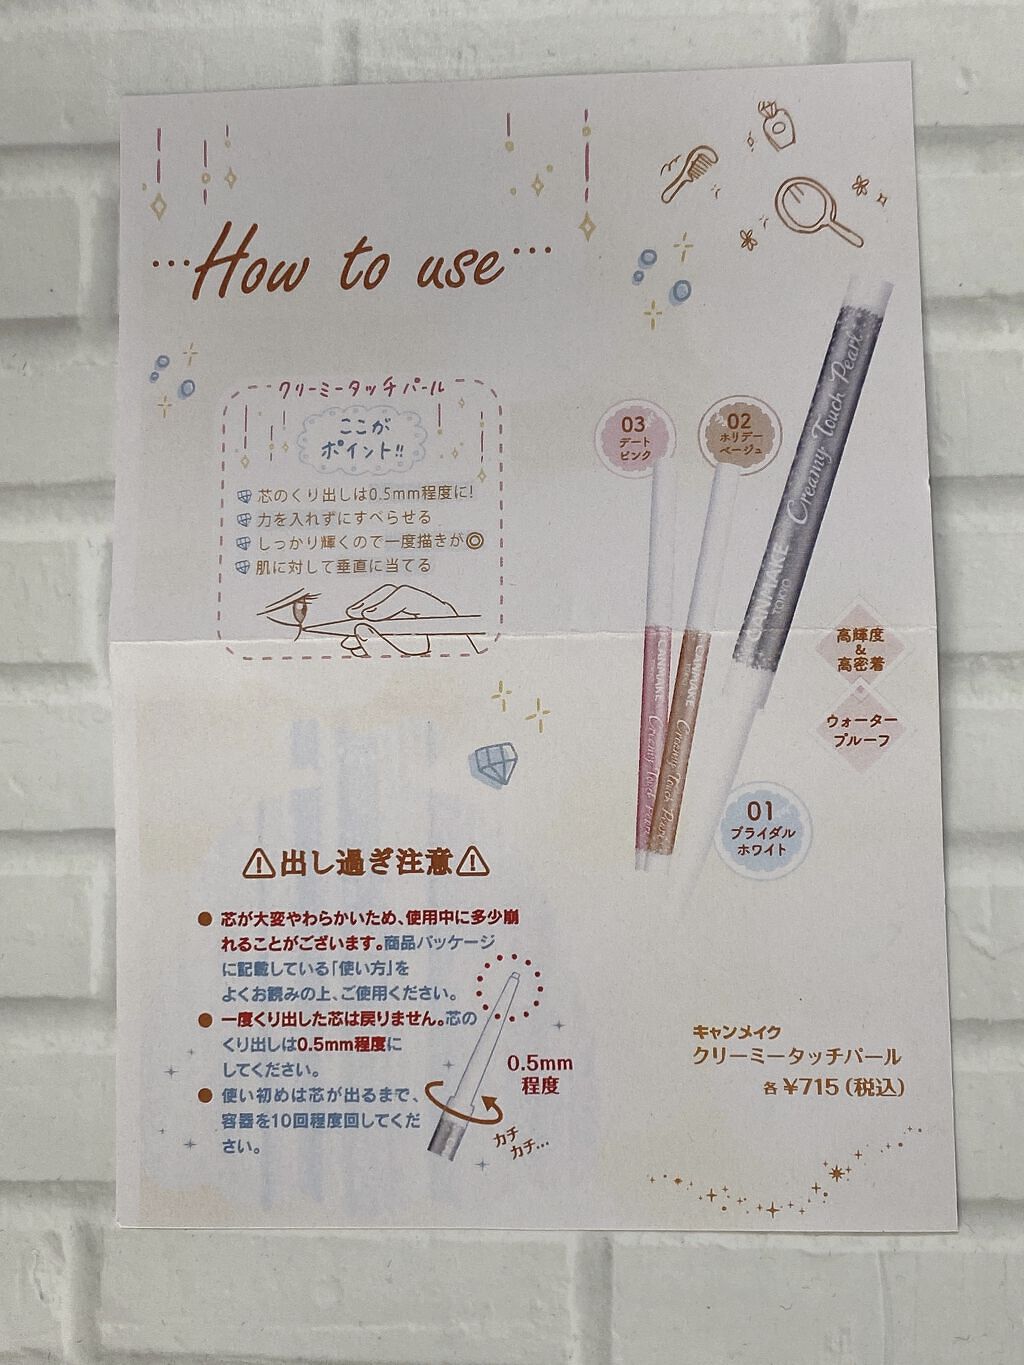 …How to use…
クリーミータッチパール
ここが
ポイント!!
芯のくり出しは0.5mm程度に!
力を入れずにすべらせる
しっかり輝くので一度描きが◎
肌に対して垂直に当てる
03
デート
ピンク
02
ホリデー
ベージュ
Creamy Touch Pearl
CANMAKE
TOKYO
CANMAKE
Creamy Touch Pearl
CANMAKE
Creamy Touch Pearl
高輝度
&
高密着
ウォーター
プルーフ
01
ブライダル
ホワイト
⚠出し過ぎ注意⚠
● 芯が大変やわらかいため、使用中に多少崩
れることがございます。商品パッケージ
に記載している「使い方」を
よくお読みの上、ご使用ください。
● 一度くり出した芯は戻りません。芯の
くり出しは0.5mm程度に
してください。
● 使い初めは芯が出るまで、
容器を10回程度回してくだ
さい。
0.5mm
程度
カチ
カチ…
キャンメイク
クリーミータッチパール
各¥715(税込)